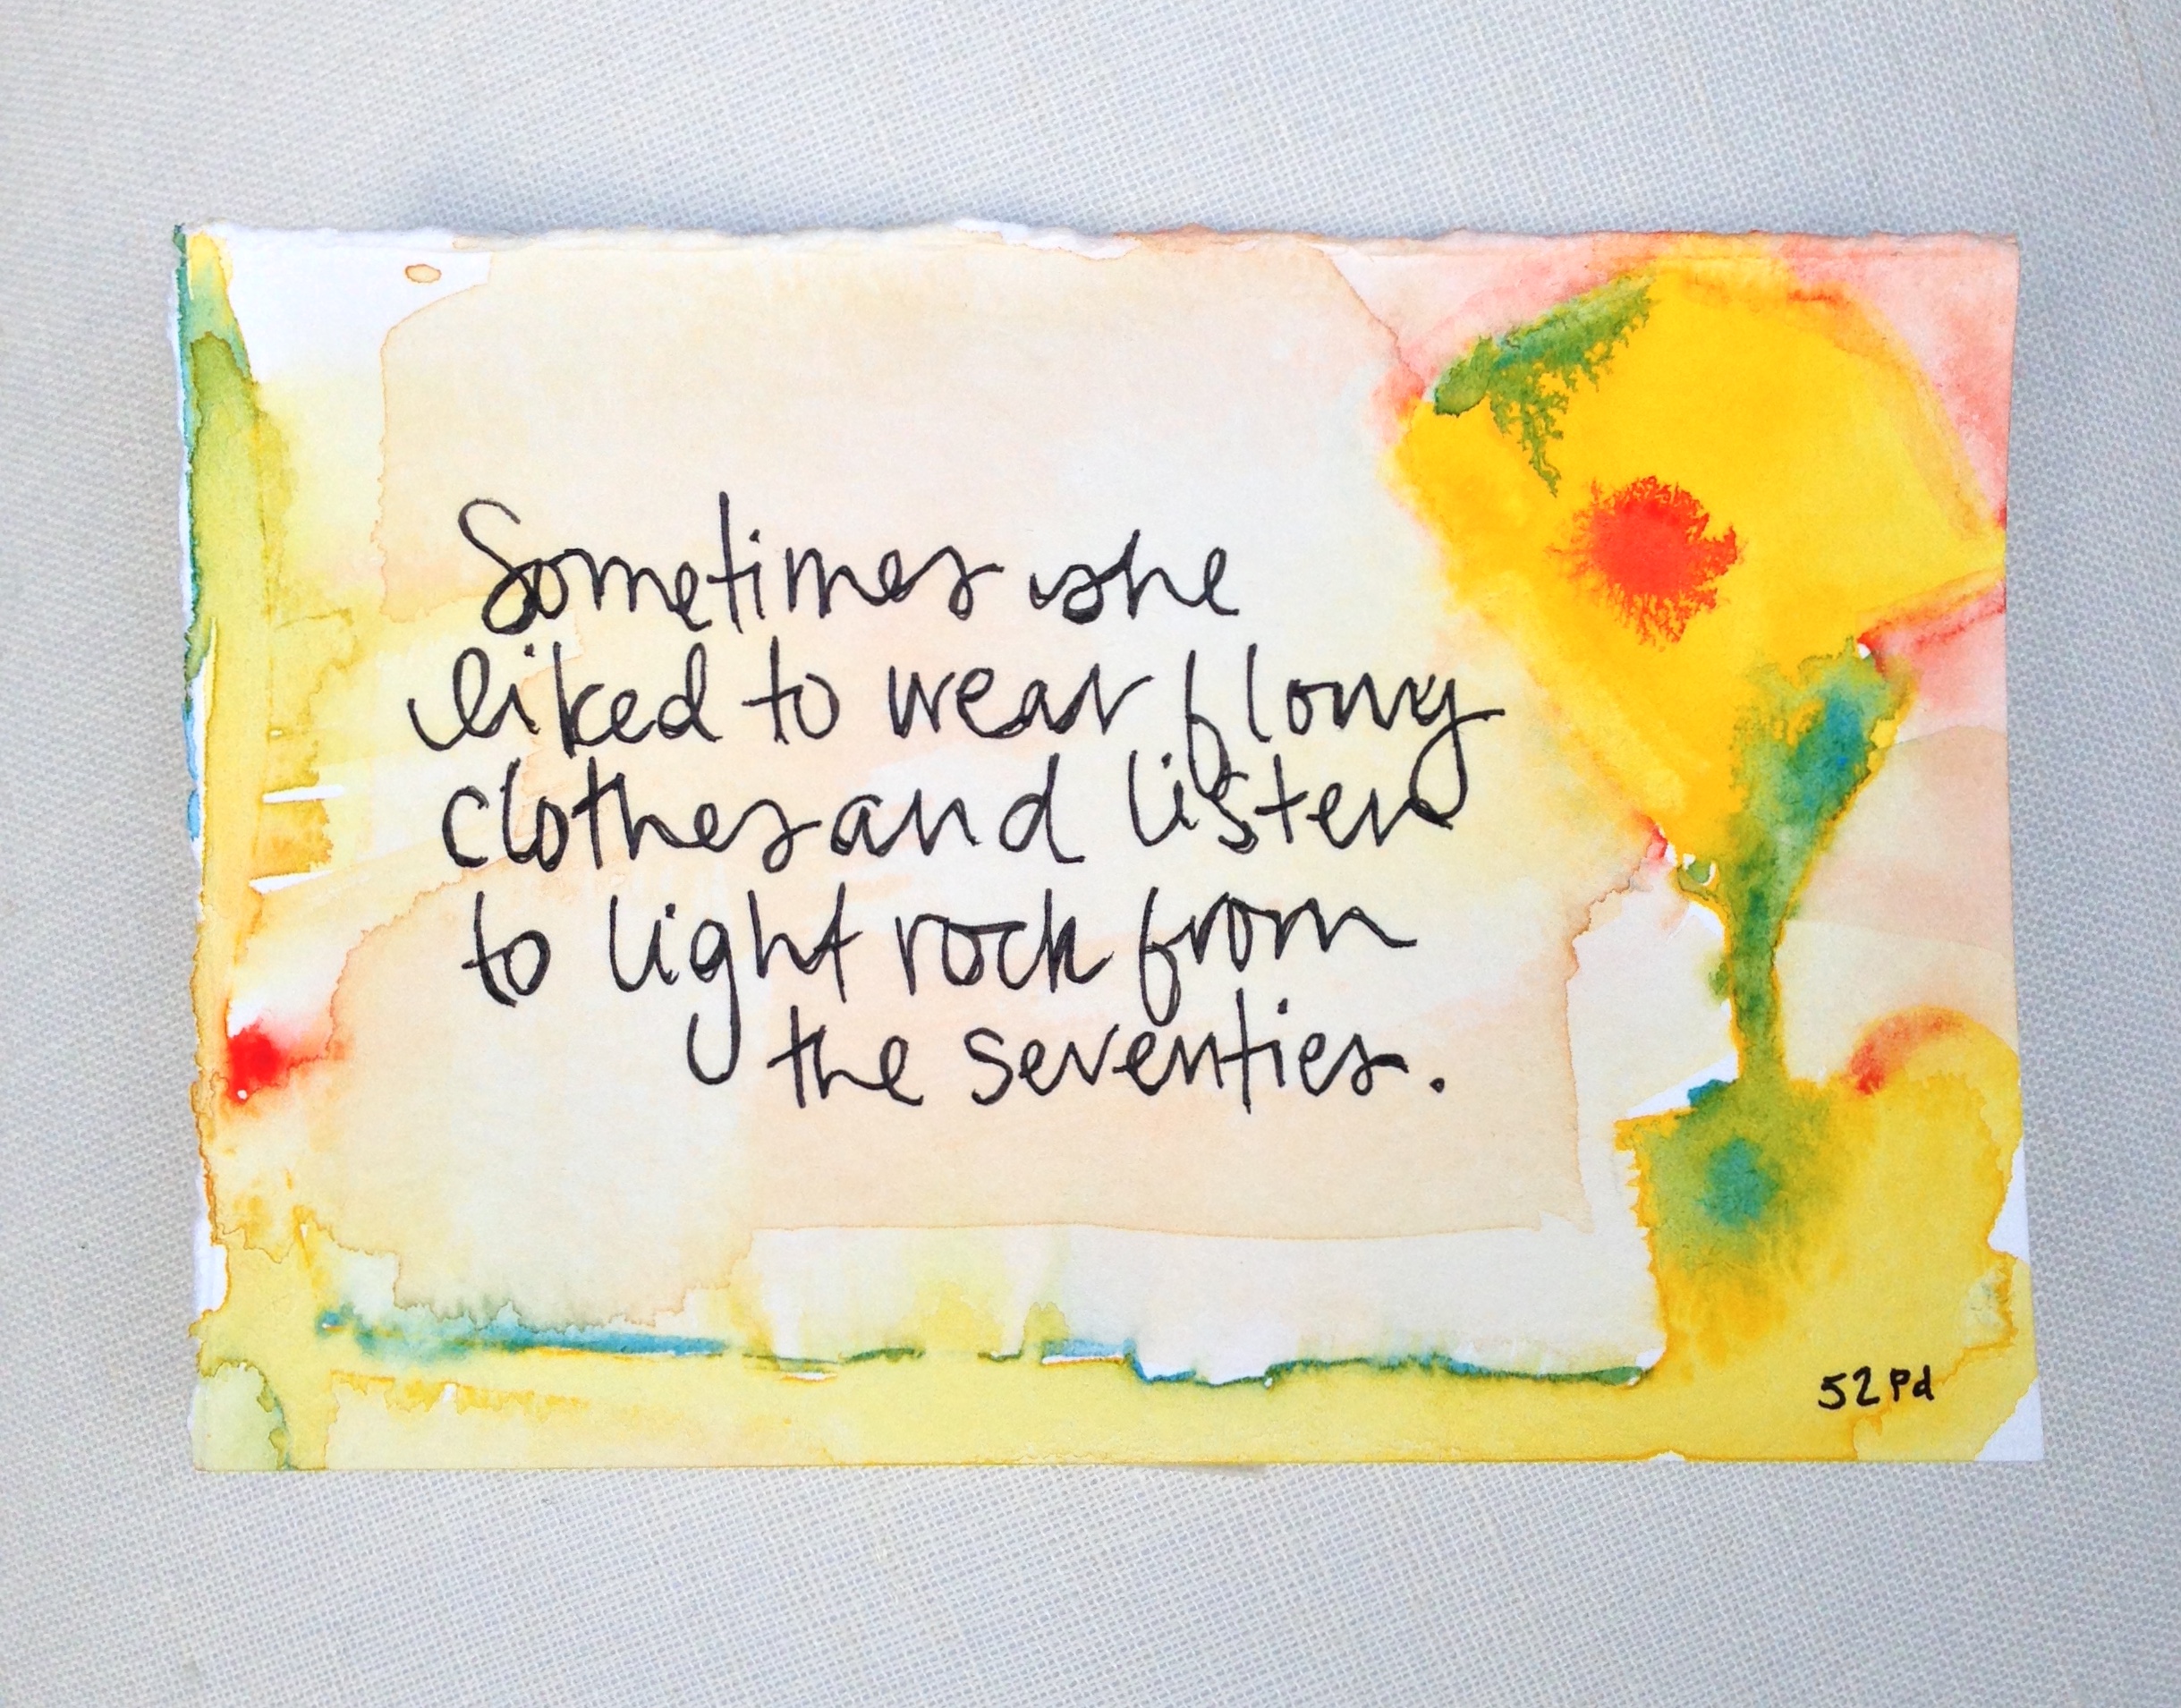 Sometimes she
liked to wear flowy
clothes and listen
to light rock from
the seventies.
52Pd